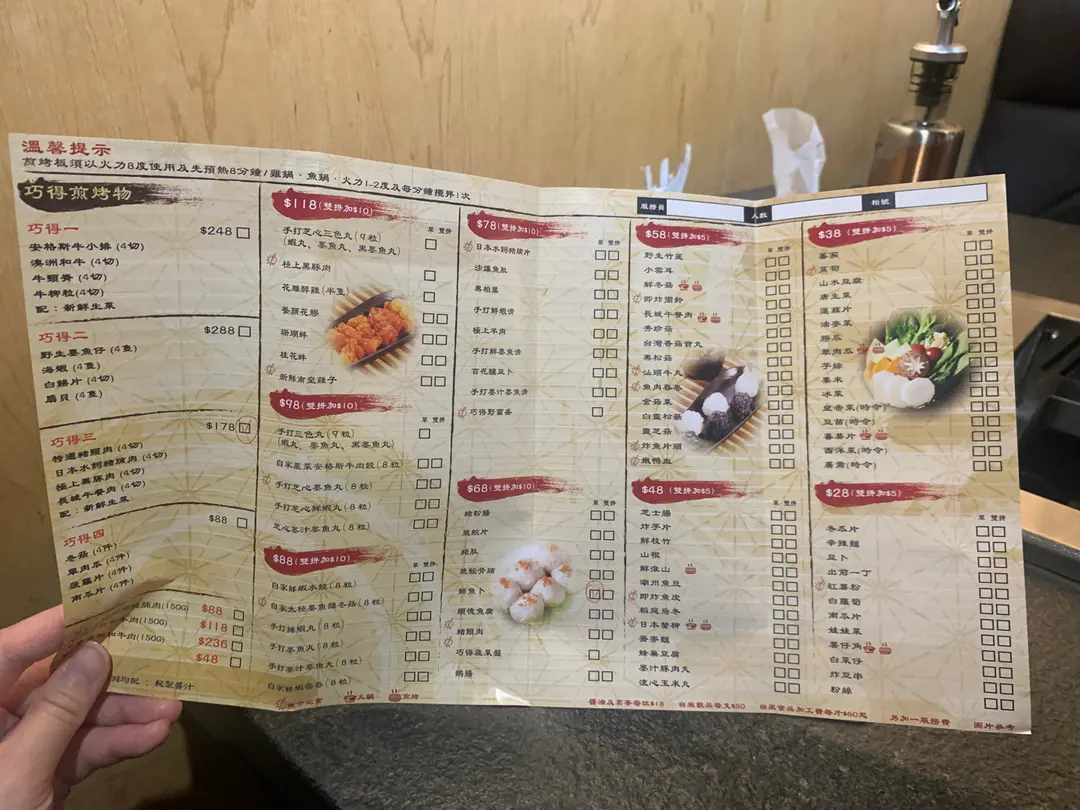 溫馨提示
煎烤板須以火力8度使用及先預熱8分鐘/雞鍋、魚鍋、火力1-2度及每分鐘攪拌1次
服務員
人數
枱號
巧得煎烤物
巧得一
$248
安格斯牛小排 (4切)
澳洲和牛 (4切)
牛頸脊 (4切)
牛柳粒(4切)
配：新鮮生菜
$288
巧得二
野生墨魚仔 (4隻)
海蝦 (4隻)
白鱔片 (4切)
扇貝 (4隻)
$178
巧得三
特選豬頸肉 (4切)
日本水飼豬腩肉 (4切)
極上黑豚肉 (4切)
長城午餐肉 (4切)
配：新鮮生菜
$88
巧得四
冬菇 (4件)
翠肉瓜 (4件)
菠蘿片 (4件)
南瓜片 (4件)
腩肉(150G) $88
牛肉(150G) $118
和牛肉(150G) $236
$48
$118(雙拼加$10)
手打芝心三色丸 (9粒)
(蝦丸、墨魚丸、黑墨魚丸)
極上黑豚肉
花雕醉雞 (半隻)
養顏花膠
珊瑚蚌
桂花蚌
新鮮南皇雞子
$98(雙拼加$10)
單 雙拼
手打三色丸 (9粒)
(蝦丸、墨魚丸、黑墨魚丸)
自家韮菜安格斯牛肉餃 (8粒)
手打芝心墨魚丸 (8粒)
手打芝心鮮蝦丸 (8粒)
芝心墨汁墨魚丸 (8粒)
$88(雙拼加$10)
單 雙拼
自家鮮蝦水餃 (8粒)
自家太極墨魚釀冬菇 (8粒)
手打鮮蝦丸 (8粒)
手打墨魚丸 (8粒)
手打墨汁墨魚丸 (8粒)
自家鮮蝦雲吞 (8粒)
推介必食
火鍋
煎烤
$78(雙拼加$10)
單 雙拼
日本水飼豬腩片
沙爆魚肚
黑柏葉
手打鮮蝦滑
極上羊肉
手打鮮墨魚滑
百花釀豆卜
手打墨汁墨魚滑
巧得野菌盤
$68(雙拼加$10)
單 雙拼
豬粉腸
脆鯇片
豬肚
脆鯇骨腩
鮮魚卜
順德魚腐
豬頸肉
巧得蔬菜盤
鵝腸
$58(雙拼加$5)
單 雙拼
野生竹笙
小雲耳
鮮冬菇
即炸響鈴
長城午餐肉
秀珍菇
台灣香菇貢丸
黑松菇
汕頭牛丸
魚肉春卷
金菇菜
白靈松菇
靈芝菇
炸魚片頭
嫩鴨血
$48(雙拼加$5)
單 雙拼
芝士腸
炸芋片
鮮枝竹
山根
鮮淮山
潮州魚旦
即炸魚皮
稻庭烏冬
日本蟹柳
蕎麥麵
蜂巢豆腐
墨汁豚肉丸
流心玉米丸
$38(雙拼加$5)
單 雙拼
蕃茄
萵筍
山水豆腐
唐生菜
蓮藕片
油麥菜
勝瓜
翠肉瓜
芋絲
粟米
冰菜
皇帝菜(時令)
豆苗(時令)
蕃薯片
西洋菜(時令)
茼蒿(時令)
$28(雙拼加$5)
單 雙拼
冬瓜片
辛辣麵
豆卜
出前一丁
紅薯粉
白蘿蔔
南瓜片
娃娃菜
薯仔角
白菜仔
炸豆串
粉絲
醬油及茗茶每位$18
自來飲品每支$50
自來食品加工費每片$60起
另加一服務費
圖片參考